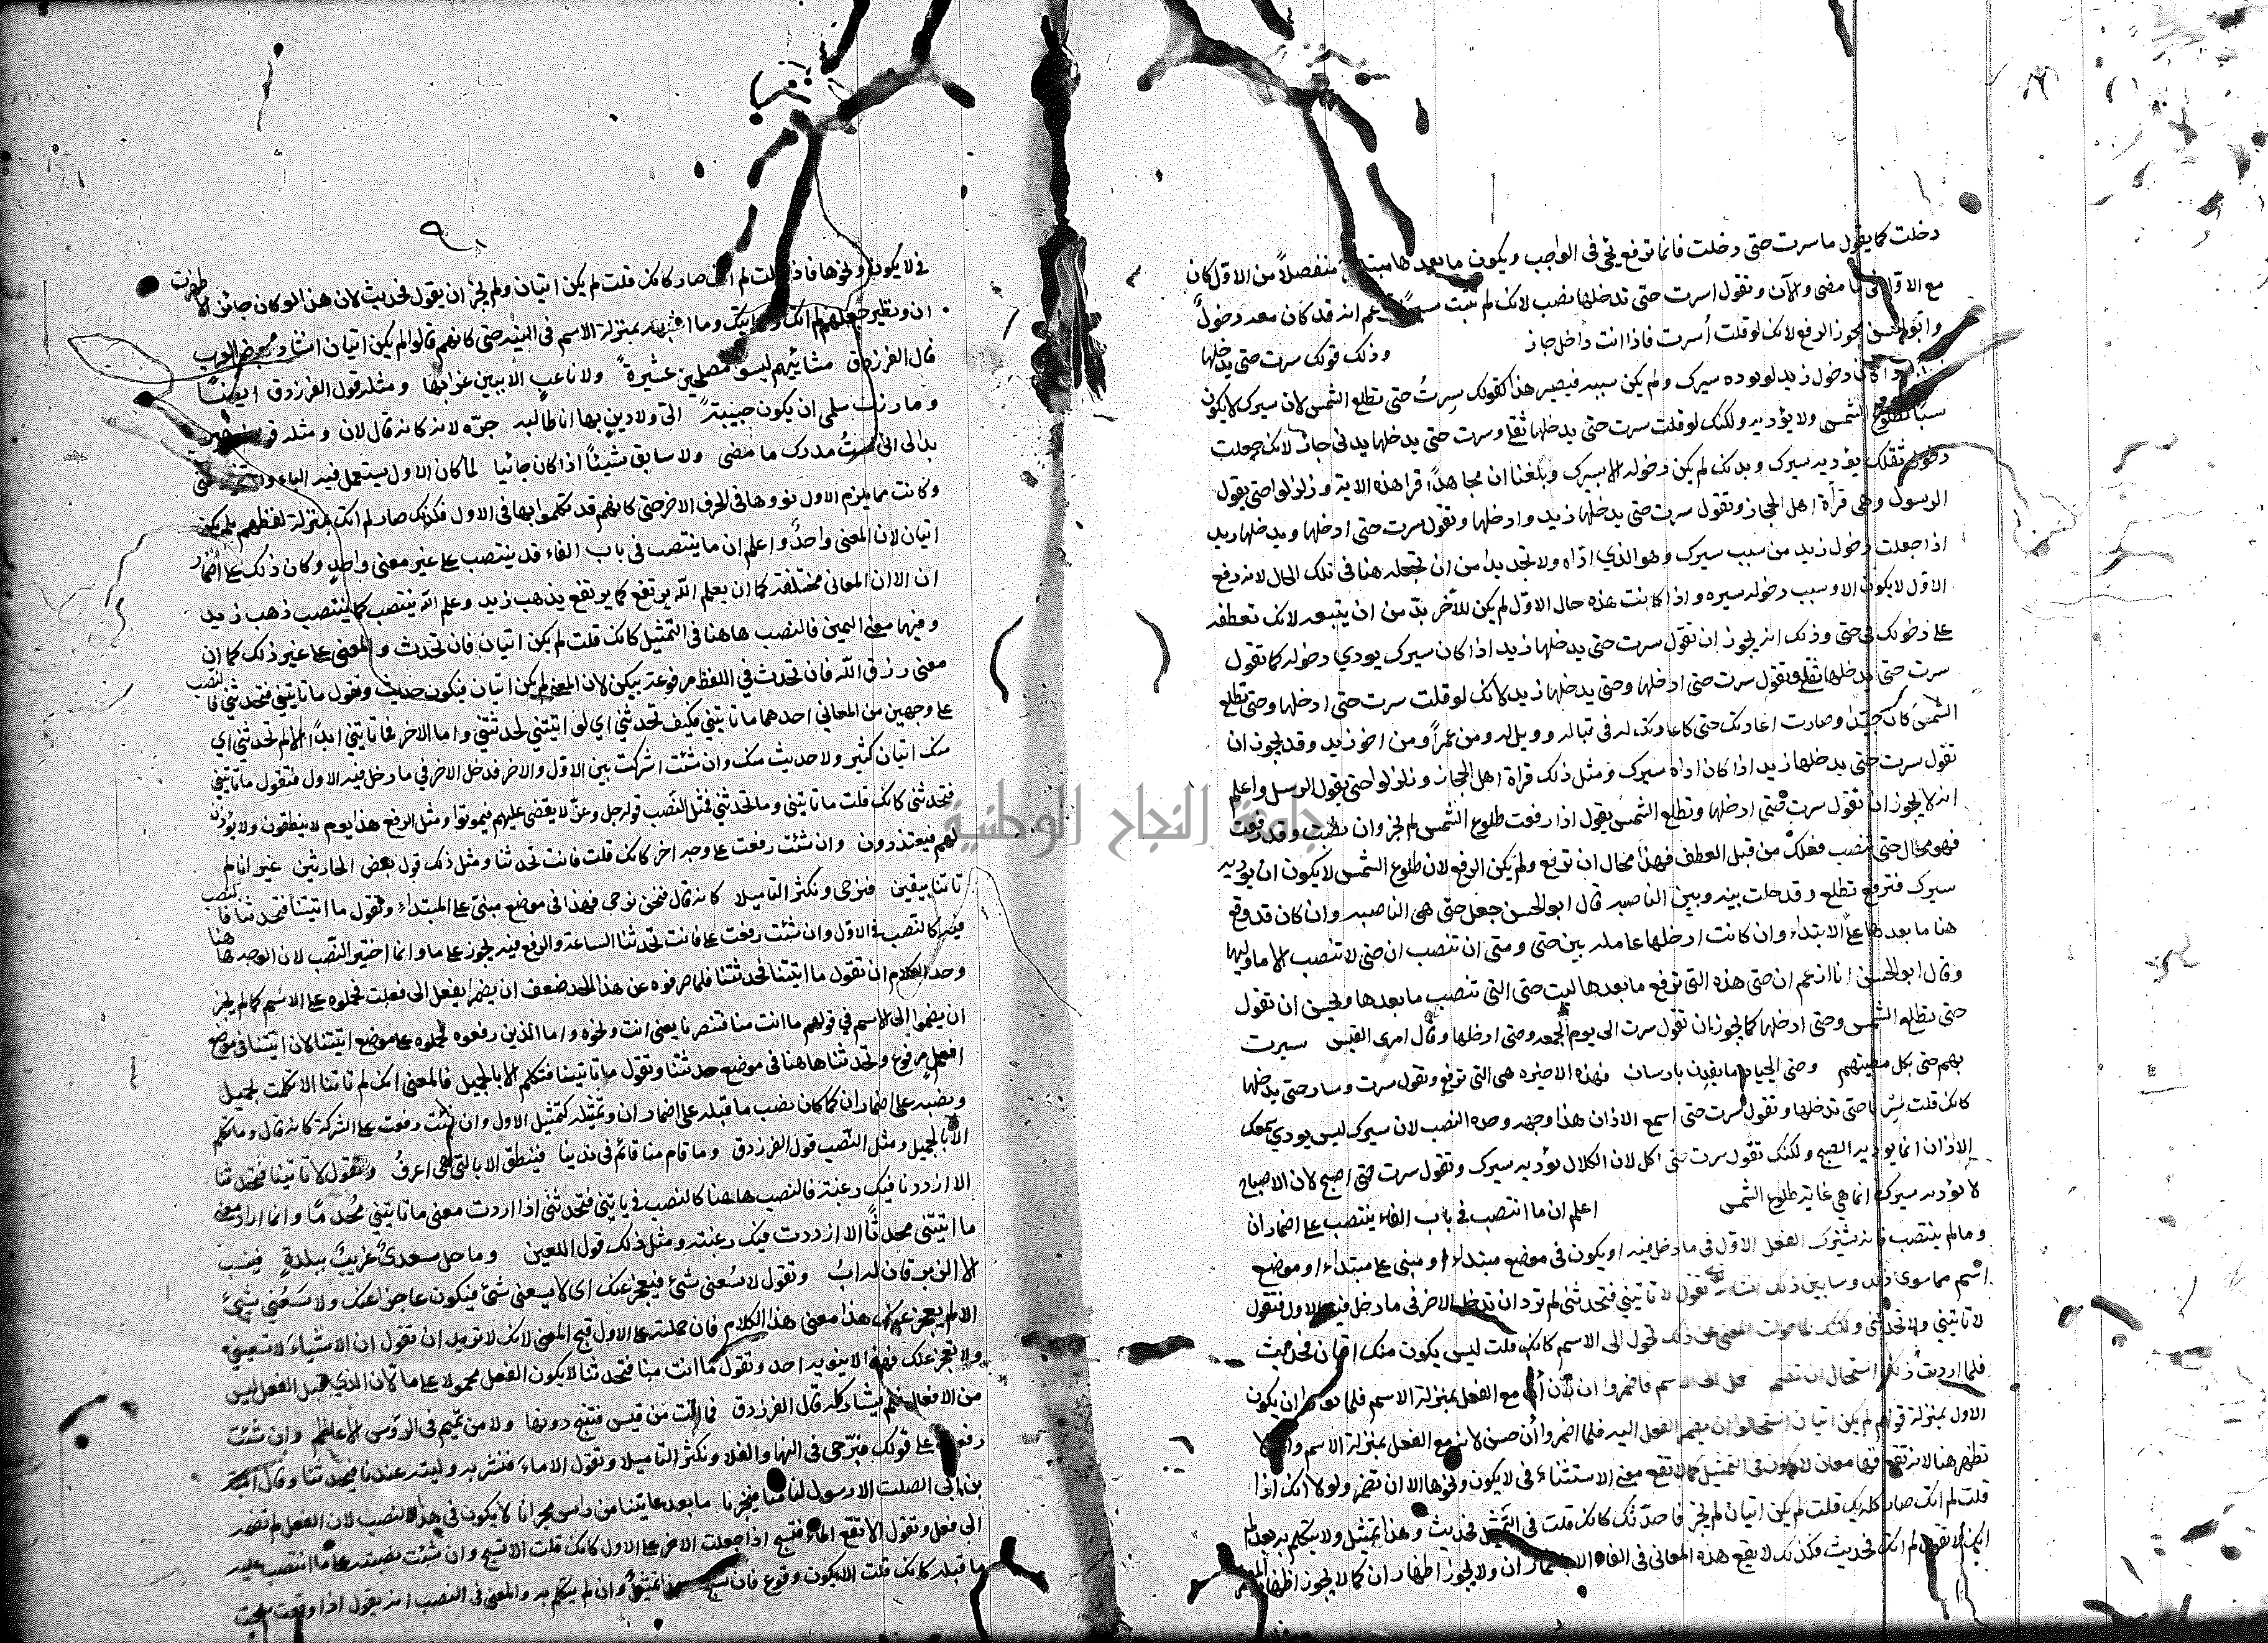 دخلت كما يقول ما سرت حتى دخلت فانما ترفع يحي في الواجب ويكون ما بعدها مبتدا منفصلاً من الاول كان
مع الاول في ما مضى والآن وتقول اسرت حتى تدخلها نصب لانك لم تثبت سيرا تزعم انه قد كان معه دخول
وابو الحسن يجوز الرفع لانك لو قلت أسرت فاذا انت داخل جاز وذلك قولك سرت حتى يدخلها
زيد اذا كان دخول زيد لم يوده سيرك ولم يكن سببه فيصير هذا كقولك سرتُ حتى تطلع الشمس لان سيرك لا يكون
سببا لطلوع الشمس ولا يؤديه ولكنك لو قلت سرت حتى يدخلها ثقلى وسرت حتى يدخلها بدنى جاز لانك جعلت
دخول ثقلك يؤديه سيرك وبدنك لم يكن دخوله الا بسيرك وبلغنا ان مجاهدًا قرا هذه الاية وزلزلوا حتى يقول
الرسول وهى قرأة اهل الحجاز وتقول سرت حتى يدخلها زيد وادخلها وتقول سرت حتى ادخلها ويدخلها زيد
اذا جعلت دخول زيد من سبب سيرك وهو الذي اداه ولا تجد بدا من ان تجعله هنا في تلك الحال لانه رفع
الاول لا يكون الا وسبب دخوله سيره واذا كانت هذه حال الاول لم يكن للآخر بدّ من ان يتبعه لانك تعطفه
على دخولك في حتى وذلك انه يجوز ان تقول سرت حتى يدخلها زيد اذا كان سيرك يودي دخوله كما تقول
سرت حتى يدخلها ثقلى وتقول سرت حتى ادخلها وحتى يدخلها زيد لانك لو قلت سرت حتى ادخلها وحتى تطلع
الشمسَ كان جيّدا وصارت اعادتك حتى كاعادتك له في تبا له وويل له ومن عمراً ومن اخو زيد وقد يجوز ان
تقول سرت حتى يدخلها زيد اذا كان اداه سيرك ومثل ذلك قراة اهل الحجاز وزلزلوا حتى يقول الرسول واعلم
انه لا يجوز ان تقول سرت حتى ادخلها وتطلع الشمس يقول اذا رفعت طلوع الشمس لم يجز وان نصبت وقد رفعت
فهو محال حتى تنصب فعلك من قبل العطف فهذا محال ان ترفع ولم يكن الرفع لان طلوع الشمس لا يكون ان يوديه
سيرك فترفع تطلع وقد حلت بينه وبين الناصبه قال ابو الحسن جعل حتى هى الناصبه وان كان قد وقع
هنا ما بعدها على الابتداء وان كانت ادخلها عامله بين حتى ومتى ان تنصب ان حتى لا تنصب الا ما وليها
وقال ابو الحسن انا ازعم ان حتى هذه التى ترفع ما بعدها ليست حتى التى تنصب ما بعدها ويحسن ان تقول
حتى تطلع الشمس وحتى ادخلها كما يجوز ان تقول سرت الى يوم الجمعه وحتى ادخلها وقال امرى القيس سريت
بهم حتى تكل مطيهم وحتى الجياد ما يقدن بارسان فهذه الاخيره هى التى ترفع وتقول سرت وسار حتى يدخلها
كانك قلت سِرنا حتى ندخلها وتقول سرت حتى اسمع الاذان هذا وجهه وحده النصب لان سيرك ليس يودي سمعك
الاذان انما يوديه الصبح ولكنك تقول سرت حتى اكل لان الكلال يؤديه سيرك وتقول سرت حتى اصبح لان الاصباح
لا يؤديه سيرك انما هي غاية طلوع الشمس اعلم ان ما انتصب في باب الفاء ينتصب على اضمار ان
وما لم ينتصب فانه يشرك الفعل الاول في ما دخل فيه او يكون في موضع مبتداء او مبنى على مبتداء او موضع
اسم مما سوى ذلك وسابين ذلك تقول لا تاتيني فتحدثنى لم ترد ان تدخل الاخر في ما دخل فيه الاول فتقول
لا تاتيني ولا تحدثنى ولكنك لما حولت المعنى عن ذلك تحول الى الاسم كانك قلت ليس يكون منك اتيان فحديث
فلما اردت ذلك استحال ان تضم الى الاسم فاضمروا ان لأن أن مع الفعل بمنزلة الاسم فلما نووا ان يكون
الاول بمنزلة قولهم لم يكن اتيان استحالوا ان يضم الفعل اليه فلما اضمروا أن حسن لانه مع الفعل بمنزلة الاسم وان لا
تظهر هنا لانه تقع فيها معان لا تكون في التمثيل كما لا تقع معنى الاستثناء في لا يكون ونحوها الا ان تضمر ولولا انك اذا
قلت لم اتك صار كانك قلت لم يكن اتيان لم يجز فاحدّثك كانك قلت في التمثيل فحديث وهذا تمثيل ولا يتكلم به بعد لم
اتك لا تقول لم اتك فحديث فكذلك لا يقع هذه المعانى في الفاء الا باضمار ان ولا يجوز اظهار ان كما لا يجوز اظهار المضمر
في لا يكون ونحوها فاذا قلت لم اتك صار كانك قلت لم يكن اتيان ولم يجز ان يقول فحديث لان هذا لو كان جائزا لاظهرت
ان ونظير جعلهم لم اتك ولا اتيك وما اشبهه بمنزلة الاسم في النية حتى كانهم قالوا لم يكن اتيان انشاد بعض العرب
قال الفرزدق مشائيهم ليسوا مصلحين عشيرةً ولا ناعبٍ الا ببين غرابها ومثله قول الفرزدق ايضا
وما زرت سلمى ان يكون حبيبةً الىّ ولا دينٍ بها انا طالبه جرّه لانه كانه قال لان ومثله قول زهير
بدا لى انى لست مدرك ما مضى ولا سابق شيئاً اذا كان جائيا لما كان الاول يستعمل فيه الباء
وكانت مما يلزم الاول نووها فى الحرف الاخر حتى كانهم قد تكلموا بها فى الاول فكذلك صار لم اتك بمنزلة لفظهم بلم يكن
اتيان لان المعنى واحد واعلم ان ما ينتصب فى باب الفاء قد ينتصب على غير معنى واحدٍ وكان ذلك على اضمار
ان الا ان المعانى مختلفة كما ان يعلم اللّه يرتفع كما يرتفع يذهب زيد وعلم اللّه ينتصب كما ينتصب ذهب زيد
وفيهما معنى اليمين فالنصب هاهنا فى التمثيل كانك قلت لم يكن اتيان فان تحدث والمعنى على غير ذلك كما ان
معنى رزق اللّه فان تحدث في اللفظ مرفوعة بيكن لان المعنى لم يكن اتيان فيكون حديث وتقول ما تاتيني فتحدثني فالنصب
على وجهين من المعاني احدهما ما تاتيني فكيف تحدثني اي لو اتيتني لحدثتني واما الاخر فما تاتيني ابدًا الا لم تحدثني اي
منك اتيان كثير ولا حديث منك وان شئت اشركت بين الاول والاخر فدخل الاخر في ما دخل فيه الاول فتقول ما تاتيني
فتحدثنى كانك قلت ما تاتينى وما تحدثنى فمثل النصب قوله جل وعزّ لا يقضى عليهم فيموتوا ومثل الرفع هذا يوم لا ينطقون ولا يؤذن
لهم فيعتذرون وان شئت رفعت على وجه اخر كانك قلت فانت تحدثنا ومثل ذلك قول بعض الحارثين غير انا لم
تاتنا بيقين فنرجى ونكثر التاميلا كانه قال فنحن نرجى فهذا فى موضع مبنى على المبتداء وتقول ما اتيتنا فتحدثنا فالنصب
فيه كالنصب في الاول وان شئت رفعت على فانت تحدثنا الساعة والرفع فيه يجوز على ما وانما اختير النصب لان الوجه هاهنا
وحد الكلام ان تقول ما اتيتنا فحدثتنا فلما صرفوه عن هذا الحد ضعف ان يضم يفعل الى فعلت فحملوه على الاسم كما لم يجز
ان يضموا الى الاسم في قولهم ما انت منا فتنصرنا يعنى انت ونحوه واما الذين رفعوه فحملوه على موضع اتيتنا لان اتيتنا فى موضع
افعل مرفوع وتحدثنا هاهنا فى موضع حدثتنا وتقول ما تاتينا فتكلم الا بالجميل فالمعنى انك لم تاتنا الا تكلمت بجميل
ونصبه على اضمار ان كما كان نصب ما قبله على اضمار ان وتمثيله كتمثيل الاول وان شئت رفعت على الشركة كانه قال وما تكلم
الا بالجميل ومثل النصب قول الفرزدق وما قام منا قائم فى ندينا فينطق الا بالتى هى اعرفُ وتقول لا تاتينا فتحدثنا
الا ازددنا فيك رغبة فالنصب هاهنا كالنصب فى ما تاتينى فتحدثنى اذا اردت معنى ما تاتينى محدثًا وانما اراد معنى
ما اتيتنى محدثًا الا ازددت فيك رغبة ومثل ذلك قول اللعين وما حل سعدىٌ غريبًا ببلدةٍ فينسب
الا الزبرقان له ابُ وتقول لا يسعنى شئ فيعجز عنك اى لا يسعنى شئ فيكون عاجزا عنك ولا يسعنى شئ
الا لم يعجز عنك هذا معنى هذا الكلام فان حملته على الاول قبح المعنى لانك لا تريد ان تقول ان الاشياء لا تسعنى
ولا تعجز عنك فهذا لا ينويه احد وتقول ما انت منا فتحدثنا لا يكون الفعل محمولا على ما لان الذي قبل الفعل ليس
من الافعال فلم يشاكله قال الفرزدق فما انت من قيس فتنبح دونها ولا من تميم فى الرؤس الاعاظم وان شئت
رفعت على قولك فنرجى فى انها والفلا ونكثر التاميلا وتقول الا ماءَ فنشربه وليته عندنا فيحدثنا وقال امية
بن ابى الصلت الا رسول لنا منا فيخبرنا ما بعد غايتنا من راس مجرانا لا يكون فى هذا الا النصب لان الفعل لم تضمه
الى فعل وتقول الا تقع الماء فتسبح اذا جعلت الاخر على الاول كانك قلت الا تسبح وان شئت نصبته على ما انتصب عليه
ما قبله كانك قلت الا يكون وقوع فان تسبح فهذا تمثيل وان لم يتكلم به والمعنى فى النصب انه يقول اذا وقعت سبحت
جامعة النجاح الوطنية